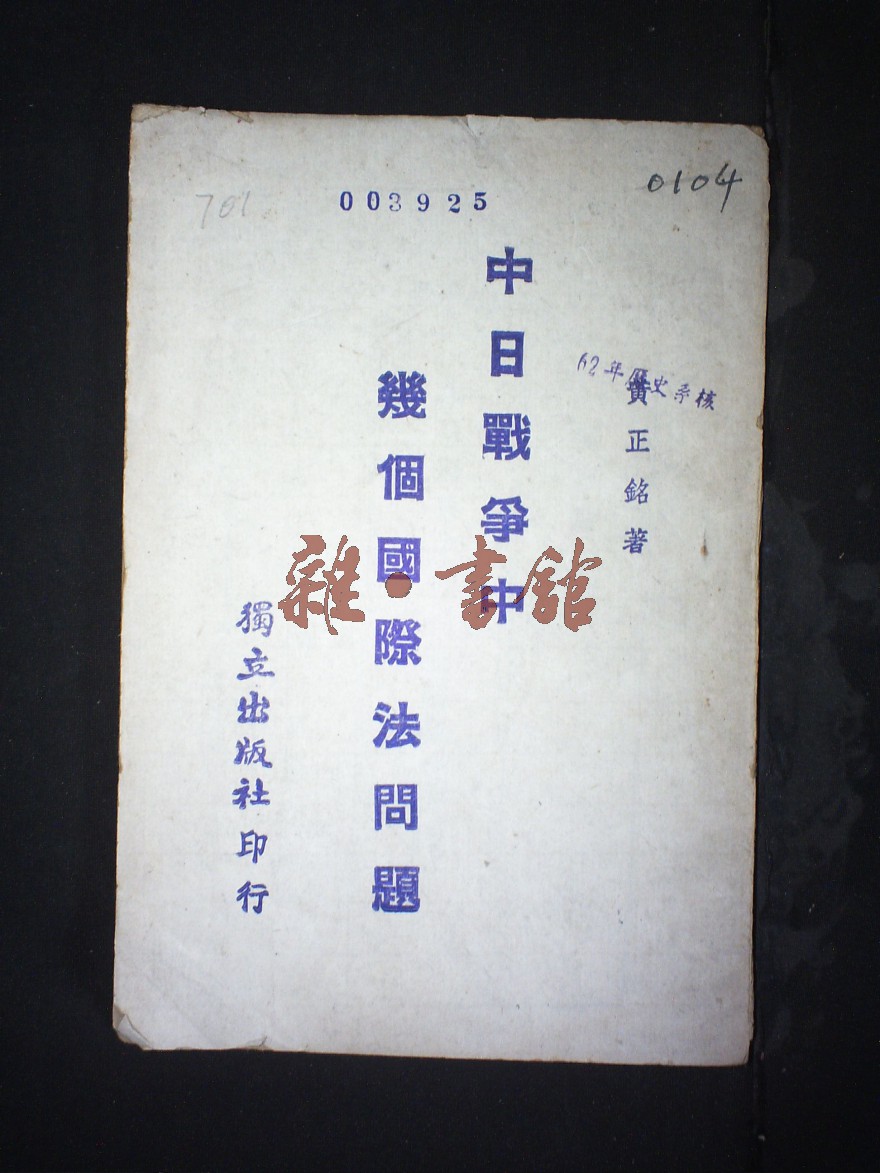 701
003925
0104
62年歷史系核
黃正銘著
中日戰爭中
幾個國際法問題
獨立出版社印行
雜·書館